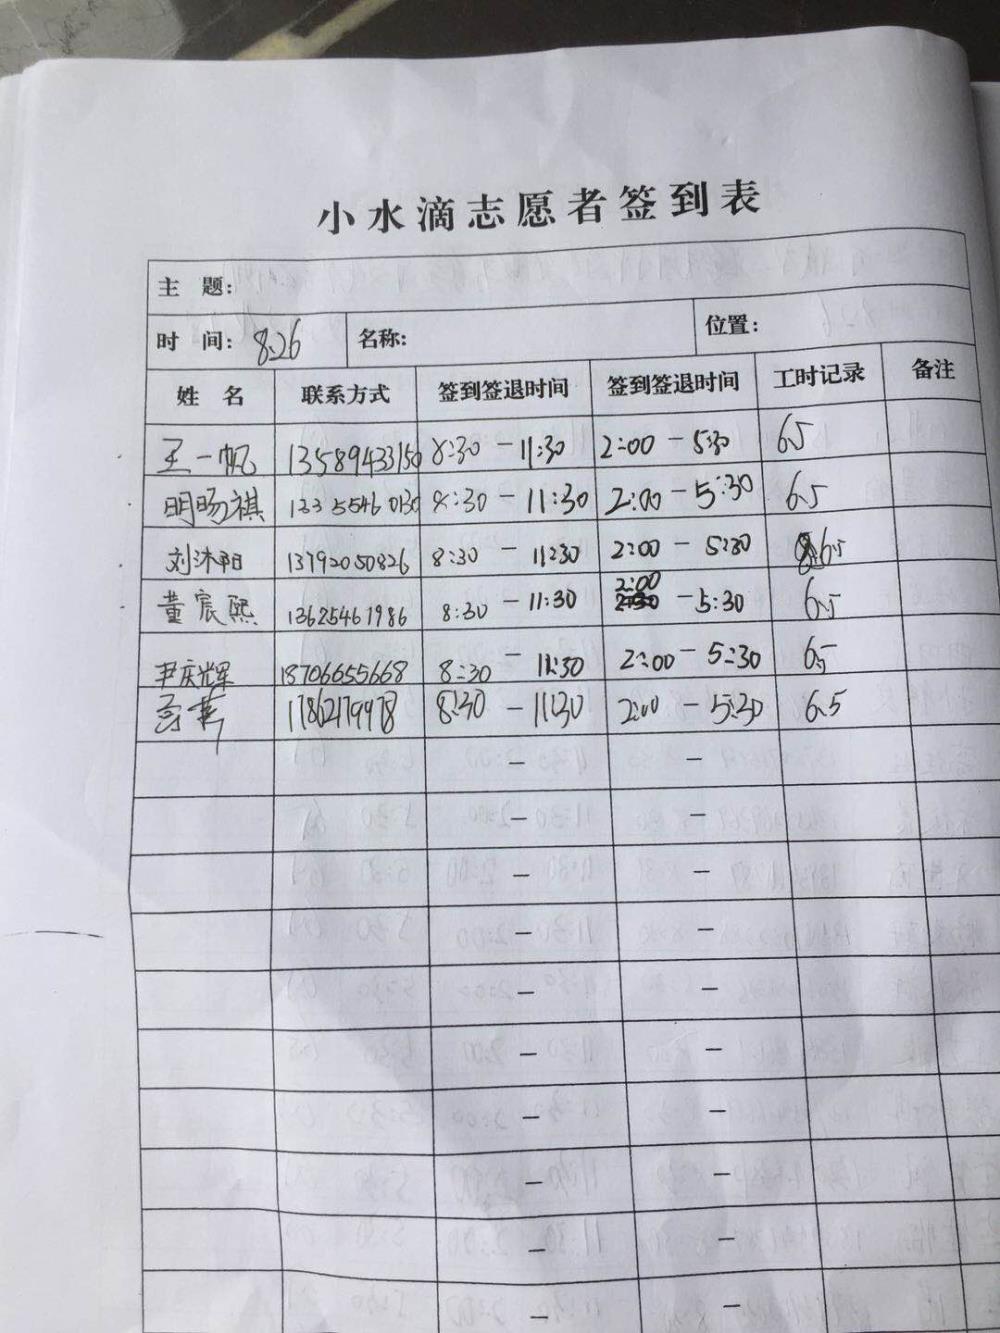 小水滴志愿者签到表
主 题:
时 间: 8.26 名称: 位置:
姓 名 联系方式 签到签退时间 签到签退时间 工时记录 备注
王一帆 13589433150 8:30 - 11:30 2:00 - 5:30 6.5
明旸祺 13355460130 8:30 - 11:30 2:00 - 5:30 6.5
刘沐阳 13792050826 8:30 - 11:30 2:00 - 5:30 6.5
董宸熙 13625461986 8:30 - 11:30 2:00 - 5:30 6.5
尹庆辉 18706655668 8:30 - 11:30 2:00 - 5:30 6.5
17862179978 8:30 - 11:30 2:00 - 5:30 6.5
- -
- -
- -
- -
- -
- -
- -
- -
- -
- -